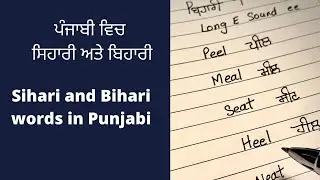 ਪੰਜਾਬੀ ਵਿਚ
ਸਿਹਾਰੀ ਅਤੇ ਬਿਹਾਰੀ
Sihari and Bihari
words in Punjabi
ਬਿਹਾਰੀ
Long E Sound ee
Peel ਪੀਲ
Meal ਮੀਲ
Seat ਸੀਟ
Heel ਹੀਲ
Neat